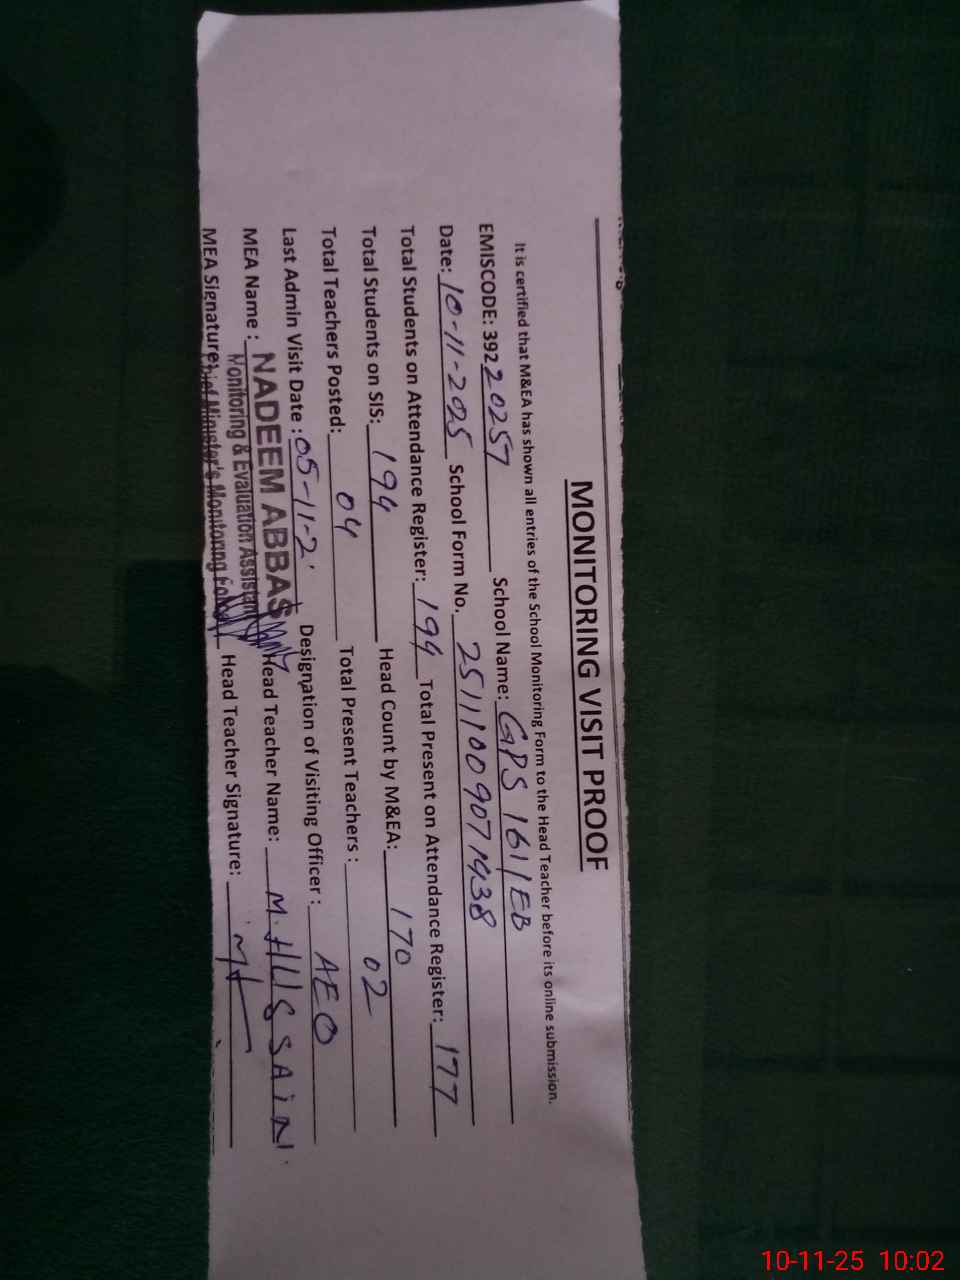 MONITORING VISIT PROOF
It is certified that M&EA has shown all entries of the School Monitoring Form to the Head Teacher before its online submission.
EMISCODE: 39220257 School Name: GPS 161/EB
Date: 10-11-2025 School Form No. 25111009071438
Total Students on Attendance Register: 194 Total Present on Attendance Register: 177
Total Students on SIS: 194 Head Count by M&EA: 170
Total Teachers Posted: 04 Total Present Teachers : 02
Last Admin Visit Date : 05-11-2 Designation of Visiting Officer : AEO
MEA Name : NADEEM ABBAS Head Teacher Name: M. HUSSAIN
Monitoring & Evaluation Assistant
MEA Signature: Chief Minister's Monitoring Force Head Teacher Signature:
10-11-25 10:02